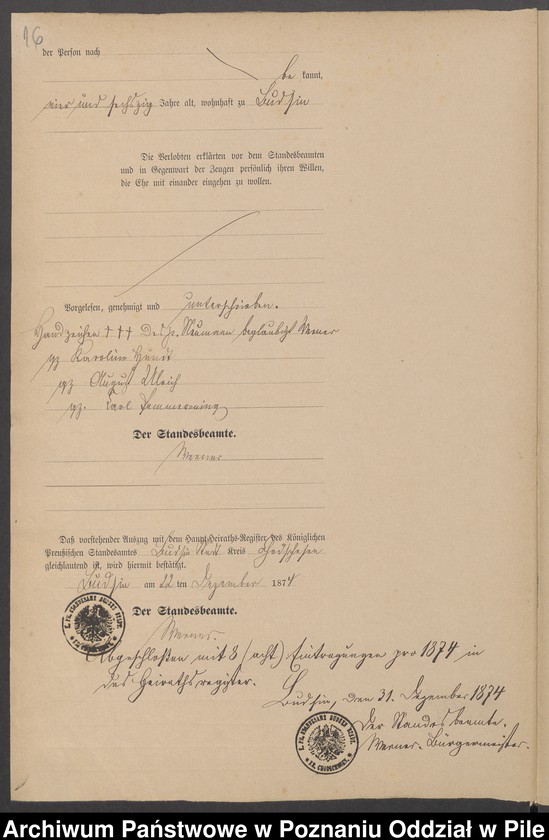 16
der Person nach
be kannt,
vier und sechszig Jahre alt, wohnhaft zu Budsin
Die Verlobten erklärten vor dem Standesbeamten
und in Gegenwart der Zeugen persönlich ihren Willen,
die Ehe mit einander eingehen zu wollen.
Vorgelesen, genehmigt und unterschrieben.
Handzeichen ††† des p. Neumann beglaubigt Werner
gz Karoline
gz August Ulrich
gz. Carl
Der Standesbeamte.
Werner
Daß vorstehender Auszug mit dem Haupt-Heiraths-Register des Königlichen
Preußischen Standesamtes Budsin Stadt Kreis Chodschesen
gleichlautend ist, wird hiermit bestätigt.
Budsin am 22 ten Dezember 1874
Der Standesbeamte.
Werner.
Abgeschloßen mit 8 (acht) Eintragungen pro 1874 in
das Heirathsregister.
Budsin, den 31. Dezember 1874
Der Standesbeamte.
Werner. Bürgermeister.
K. PR. STANDESAMT BUDSIN STADT.
KR. CHODSCHESEN
K. PR. STANDESAMT BUDSIN STADT.
KR. CHODSCHESEN
Archiwum Państwowe w Poznaniu Oddział w Pile